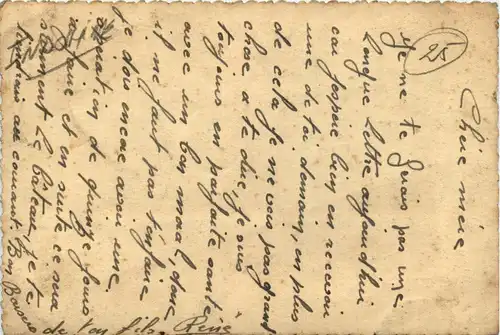 25
Chère mère
Je ne te ferais pas une
longue lettre aujourd'hui
car j'espère bien en recevoir
une de toi demain, en plus
de cela je ne vois pas grand
chose à te dire, je suis
toujours en parfaite santé
avec un bon moral, donc
il ne faut pas t'en faire
je dois encore avoir une
de quinze jours
et ensuite ce sera
le bateau, je te
tiendrais au courant Bon Baisers
de ton fils. René